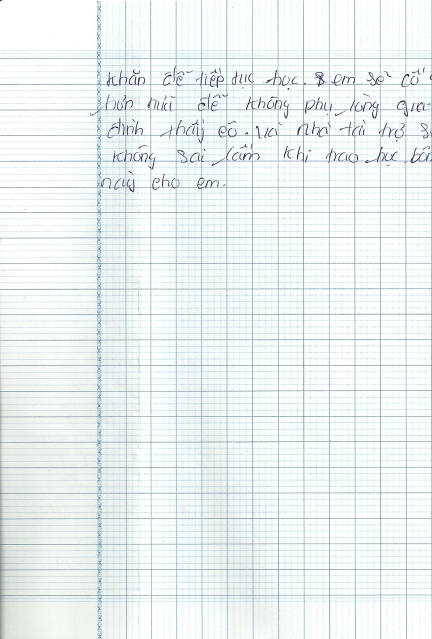 khăn để tiếp tục học. em sẽ cố
hơn nữa để không phụ lòng gia
đình thầy cô. và nhà tài trợ sẽ
không sai lầm khi trao học bổn
này cho em.